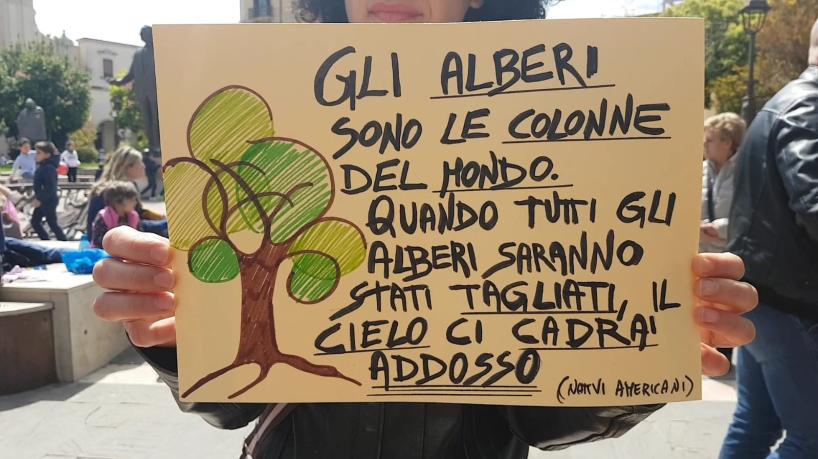 GLI ALBERI
SONO LE COLONNE
DEL MONDO.
QUANDO TUTTI GLI
ALBERI SARANNO
STATI TAGLIATI, IL
CIELO CI CADRA'
ADDOSSO
(NATIVI AMERICANI)